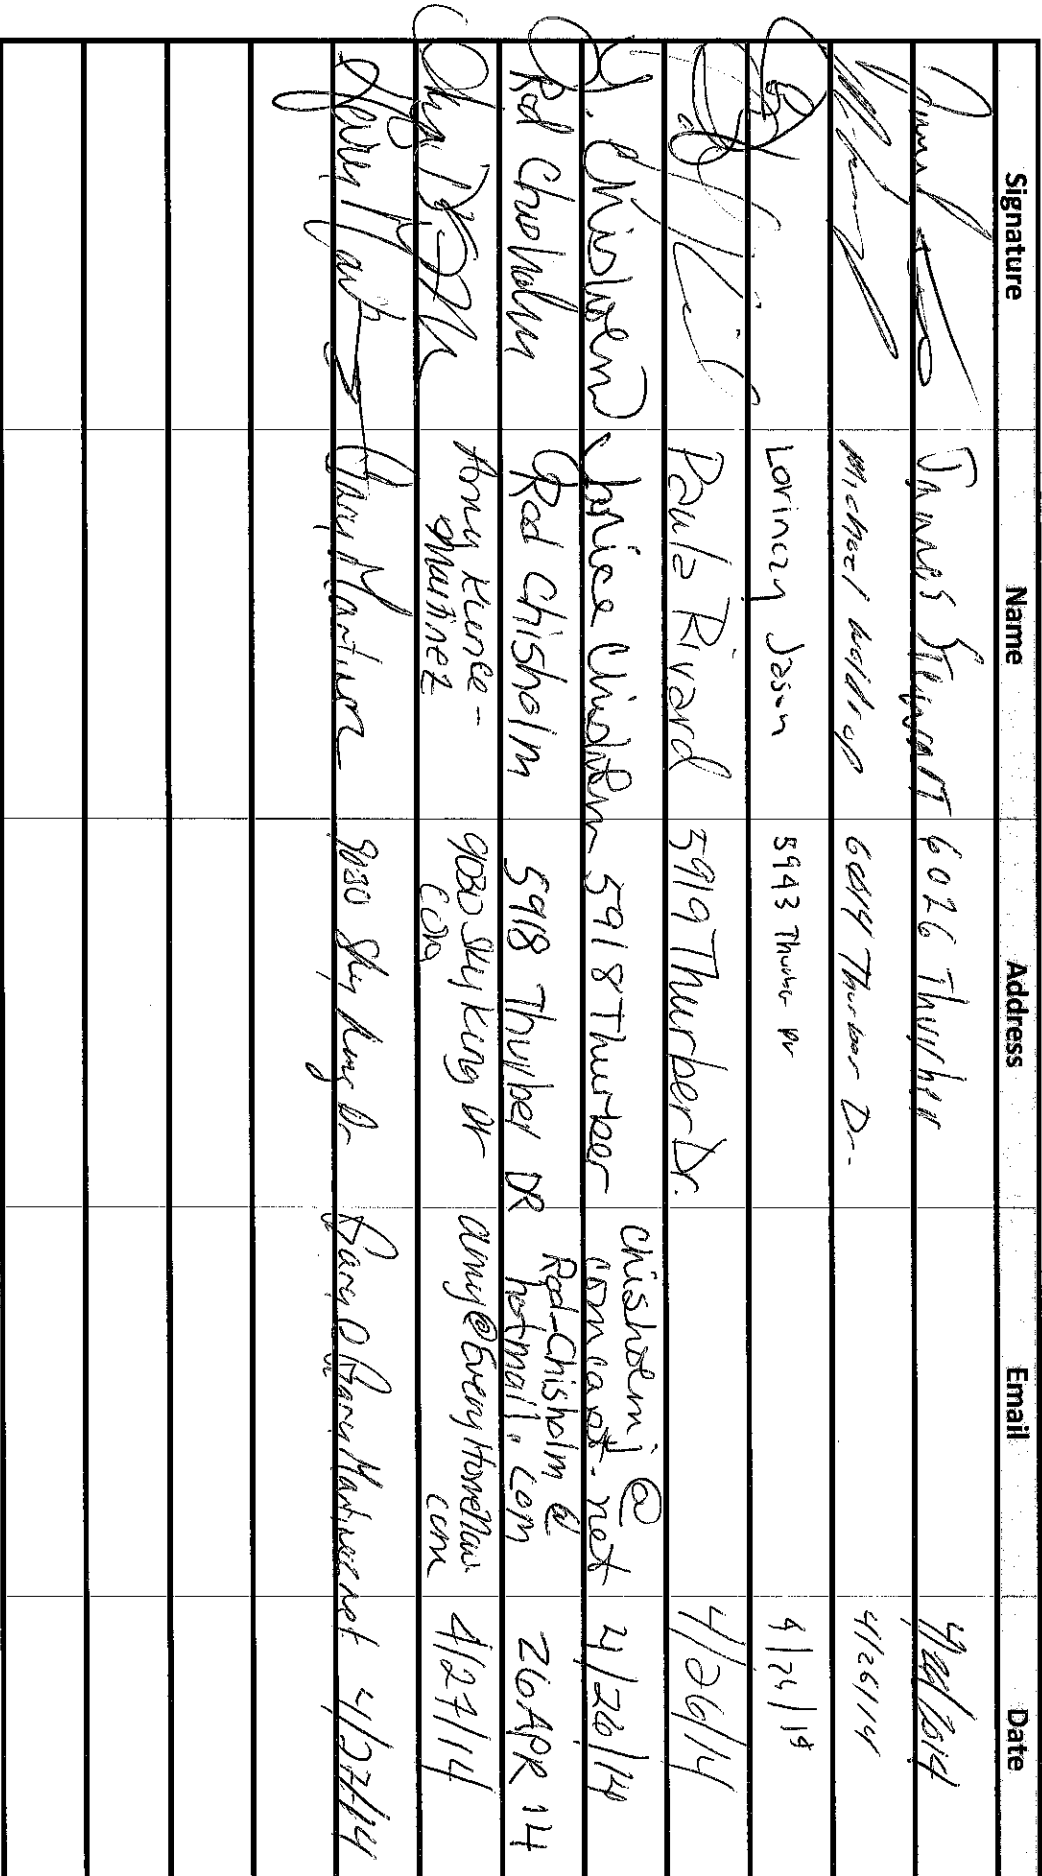 Signature Name Address Email Date
James Stewart 6026 Thurber 4/26/2014
Michael Waldrop 6014 Thurber Dr. 4/26/14
Lorinczy Jason 5943 Thurber Dr 4/26/14
Paula Rivard 5919 Thurber Dr. 4/26/14
J. Chisholm Janice Chisholm 5918 Thurber chisholmj@
comcast.net 4/26/14
Rod Chisholm Rod Chisholm 5918 Thurber DR Rod-Chisholm@
hotmail.com 26 APR 14
Amy Kunce-
Martinez 9030 Sky King Dr
COA amy@EveryHomeNow
com 4/27/14
Gary Martinez Gary Martinez 9030 Sky King Dr Gary@GaryMartinez.net 4/27/14